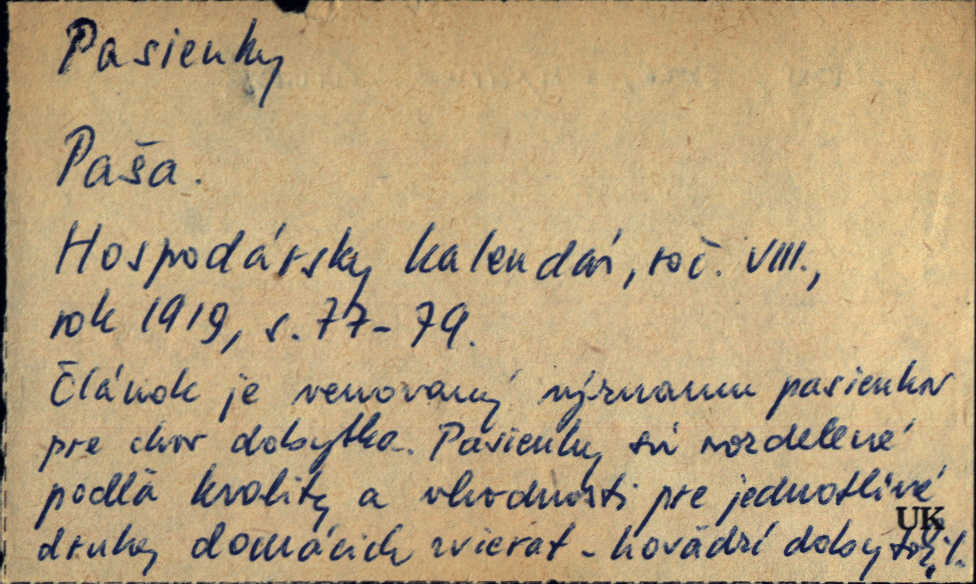 Pasienky
Paša.
Hospodársky kalendár, roč. VIII.,
rok 1919, s. 77-79.
Článok je venovaný významu pasienkov
pre chov dobytka. Pasienky sú rozdelené
podľa kvality a vhodnosti pre jednotlivé
druhy domácich zvierat - hovädzí dobytok,
UK